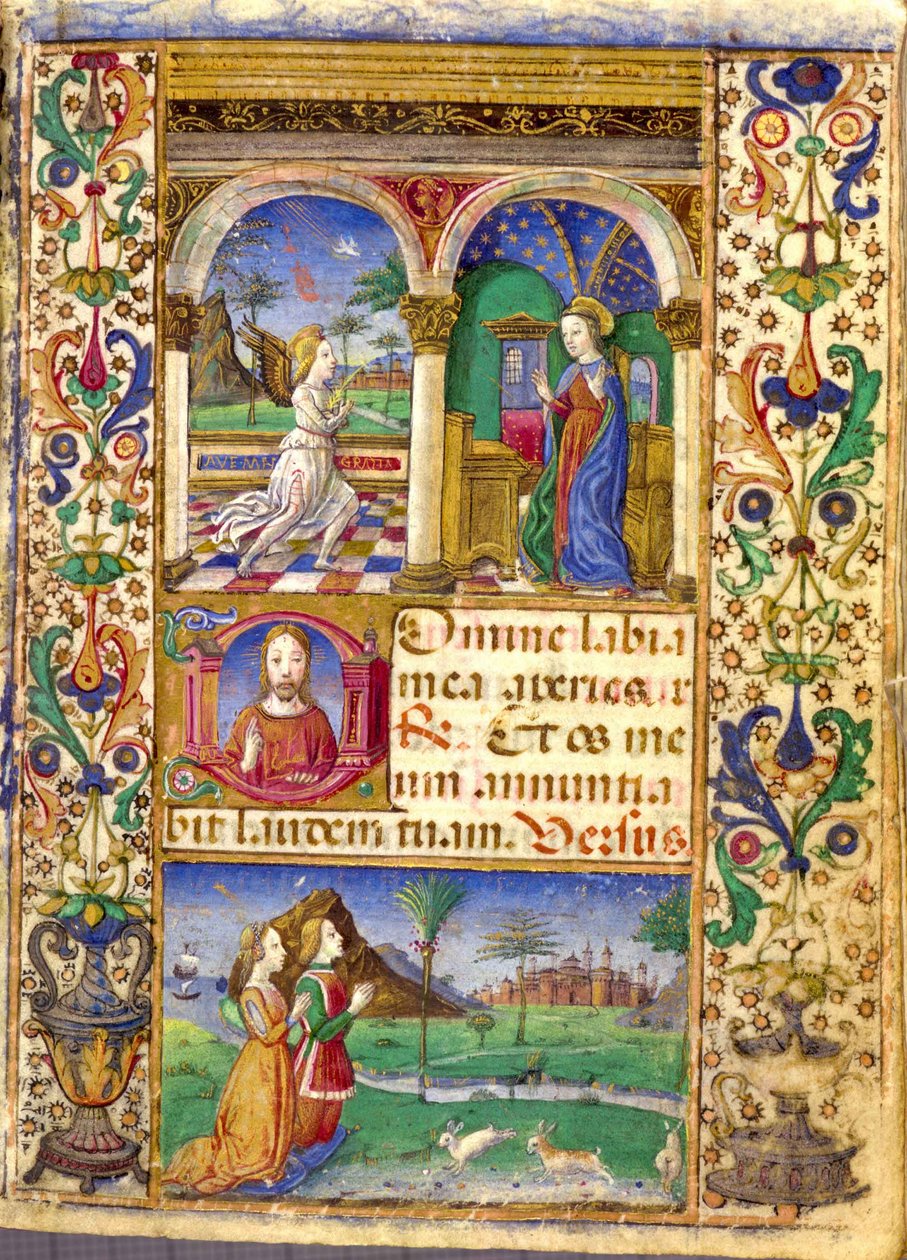 AVE GRATIA
DOmine labia
mea aperies
R. Et os me
um annuntia
bit laudem tuam. Versus.